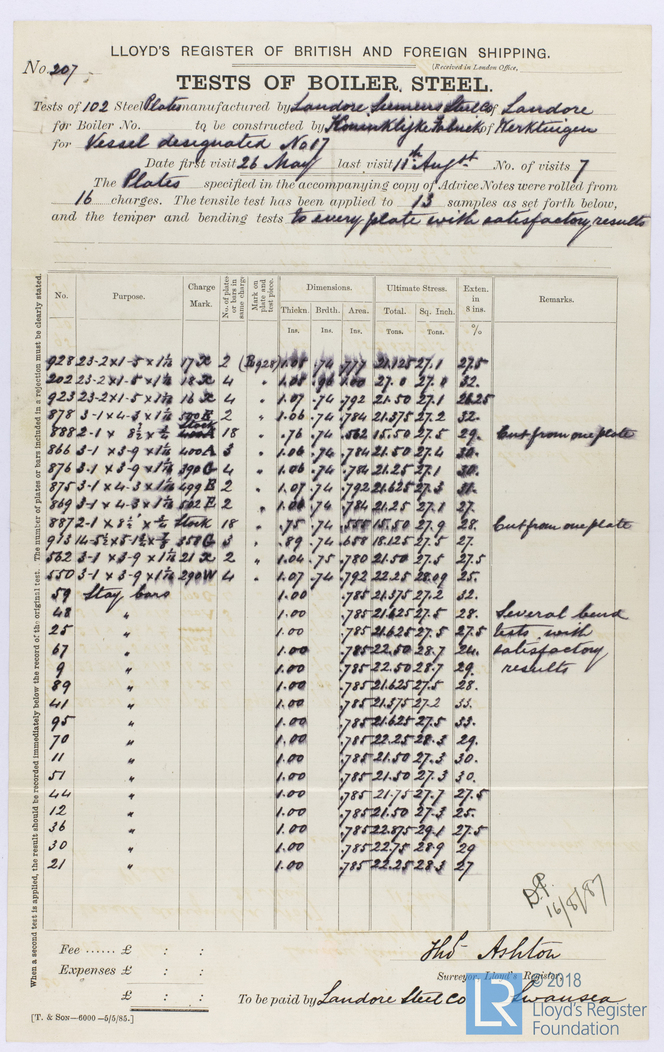 LLOYD'S REGISTER OF BRITISH AND FOREIGN SHIPPING.
No. 207
(Received in London Office,
TESTS OF BOILER STEEL.
Tests of 102 Steel Plates manufactured by Landore Siemens Steel Co of Landore
for Boiler No. to be constructed by Koninklijke Fabriek of Werktuigen
for Vessel designated No 17
Date first visit 26 May last visit 11th Augst No. of visits 7
The Plates specified in the accompanying copy of Advice Notes were rolled from
16 charges. The tensile test has been applied to 13 samples as set forth below,
and the temper and bending tests to every plate with satisfactory results
When a second test is applied, the result should be recorded immediately below the record of the original test. The number of plates or bars included in a rejection must be clearly stated.
No. Purpose. Charge Mark. No. of plates or bars in same charge Mark on plate and test piece. Dimensions. Ultimate Stress. Exten. in 8 ins. Remarks.
Thickn. Brdth. Area. Total. Sq. Inch.
Ins. Ins. Ins. Tons. Tons. %
928 23-2×1-5×1 1/16 17 X 2 (B928) 1.05 .74 .777 21.125 27.1 27.5
202 23-2×1-5×1 1/16 18 X 4 " 1.00 27.0 32.
923 23-2×1-5×1 1/16 16 X 4 " 1.07 .74 .792 21.50 27.1 26.25
878 3-1×4-3×1 1/16 2 " 1.06 .74 .784 21.375 27.2 32.
888 2-1 × 8½ × Stock 18 " .76 .74 .562 15.50 27.5 29. Cut from one plate
866 3-1 × 3-9 × 1 1/16 400 A 3 " 1.06 .74 .784 21.50 27.4 30.
876 3-1 × 3-9 × 1 1/16 390 G 4 " 1.06 .74 .784 21.25 27.1 30.
875 3-1 × 4-3 × 1 1/16 499 B 2 " 1.07 .74 .792 21.625 27.3 31.
869 3-1 × 4-3 × 1 1/16 502 E 2 " 1.06 .74 .784 21.25 27.1 27.
887 2-1 × 8½ × Stock 18 " .75 .74 .555 15.50 27.9 28. Cut from one plate
913 14-5½×5-1½× 358 G 3 " .89 .74 .658 18.125 27.5 27.
562 3-1 × 3-9 × 1 1/16 21 X 2 " 1.04 .75 .780 21.50 27.5 27.5
550 3-1 × 3-9 × 1 1/16 290 W 4 " 1.07 .74 .792 22.25 28.09 25.
59 Stay bars 1.00 .785 21.375 27.2 32.
48 " 1.00 .785 21.625 27.5 28. Several bend
25 " 1.00 .785 21.625 27.5 27.5 tests with
67 " 1.00 .785 22.50 28.7 26. satisfactory
9 " 1.00 .785 22.50 28.7 29. results
89 " 1.00 .785 21.625 27.5 28.
41 " 1.00 .785 21.375 27.2 33.
95 " 1.00 .785 21.625 27.5 33.
70 " 1.00 .785 22.25 28.3 29.
11 " 1.00 .785 21.50 27.3 30.
51 " 1.00 .785 21.50 27.3 30.
44 " .785 21.75 27.7 27.5
12 " 1.00 .785 21.50 27.3 25.
36 " 1.00 .785 22.875 29.1 27.5
30 " 1.00 .785 22.75 28.9 29
21 " 1.00 .785 22.25 28.3 27
D.P.
16/8/87
Fee ...... £ : :
Expenses £ : :
£ : :
Thos Ashton
Surveyor, Lloyd's Register,
To be paid by Landore Steel Co Swansea
[T. & SON—6000—5/5/85.]
© 2018
LR Lloyd's Register
Foundation